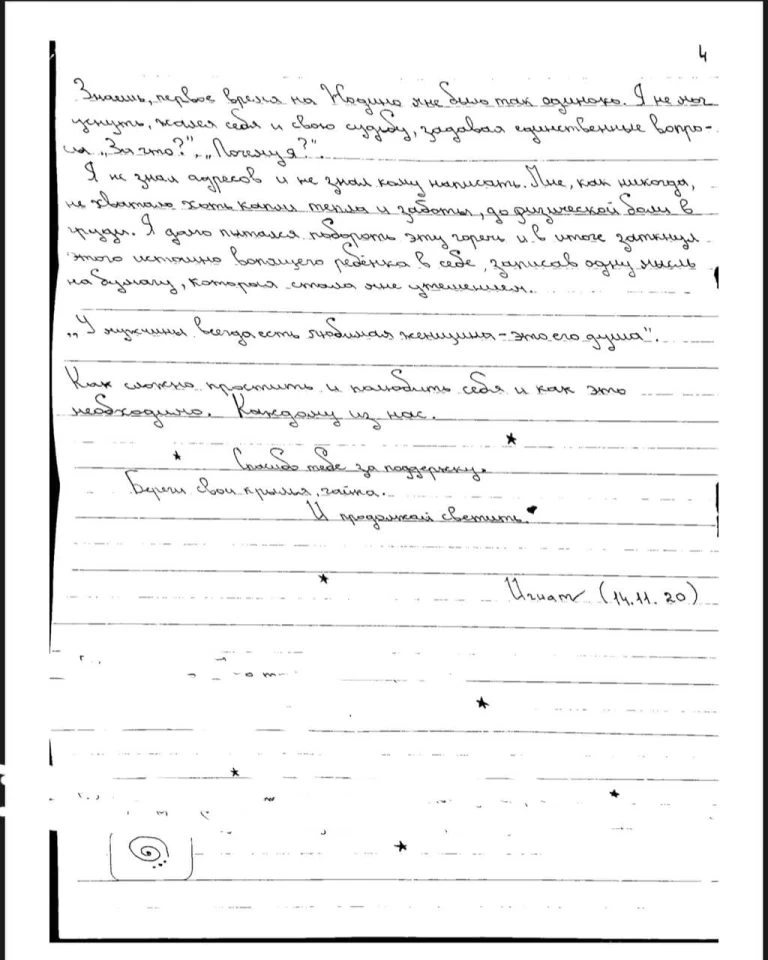 4
Знаешь, первое время на Жодино мне было так одиноко. Я не мог
уснуть, жалея себя и свою судьбу, задавая единственные вопро-
сы „За что?", „Почему я?".
Я не знал адресов и не знал кому написать. Мне, как никогда,
не хватало хоть капли тепла и заботы, до физической боли в
груди. Я долго пытался побороть эту горечь и в итоге заткнул
этого истошно вопящего ребёнка в себе, записав одну мысль
на бумагу, которая стала мне утешением.
„У мужчины всегда есть любимая женщина – это его душа".
Как сложно простить и полюбить себя и как это
необходимо. Каждому из нас.
Спасибо тебе за поддержку.
Береги свои крылья, чайка.
И продолжай светить
Игнат (14.11.20)